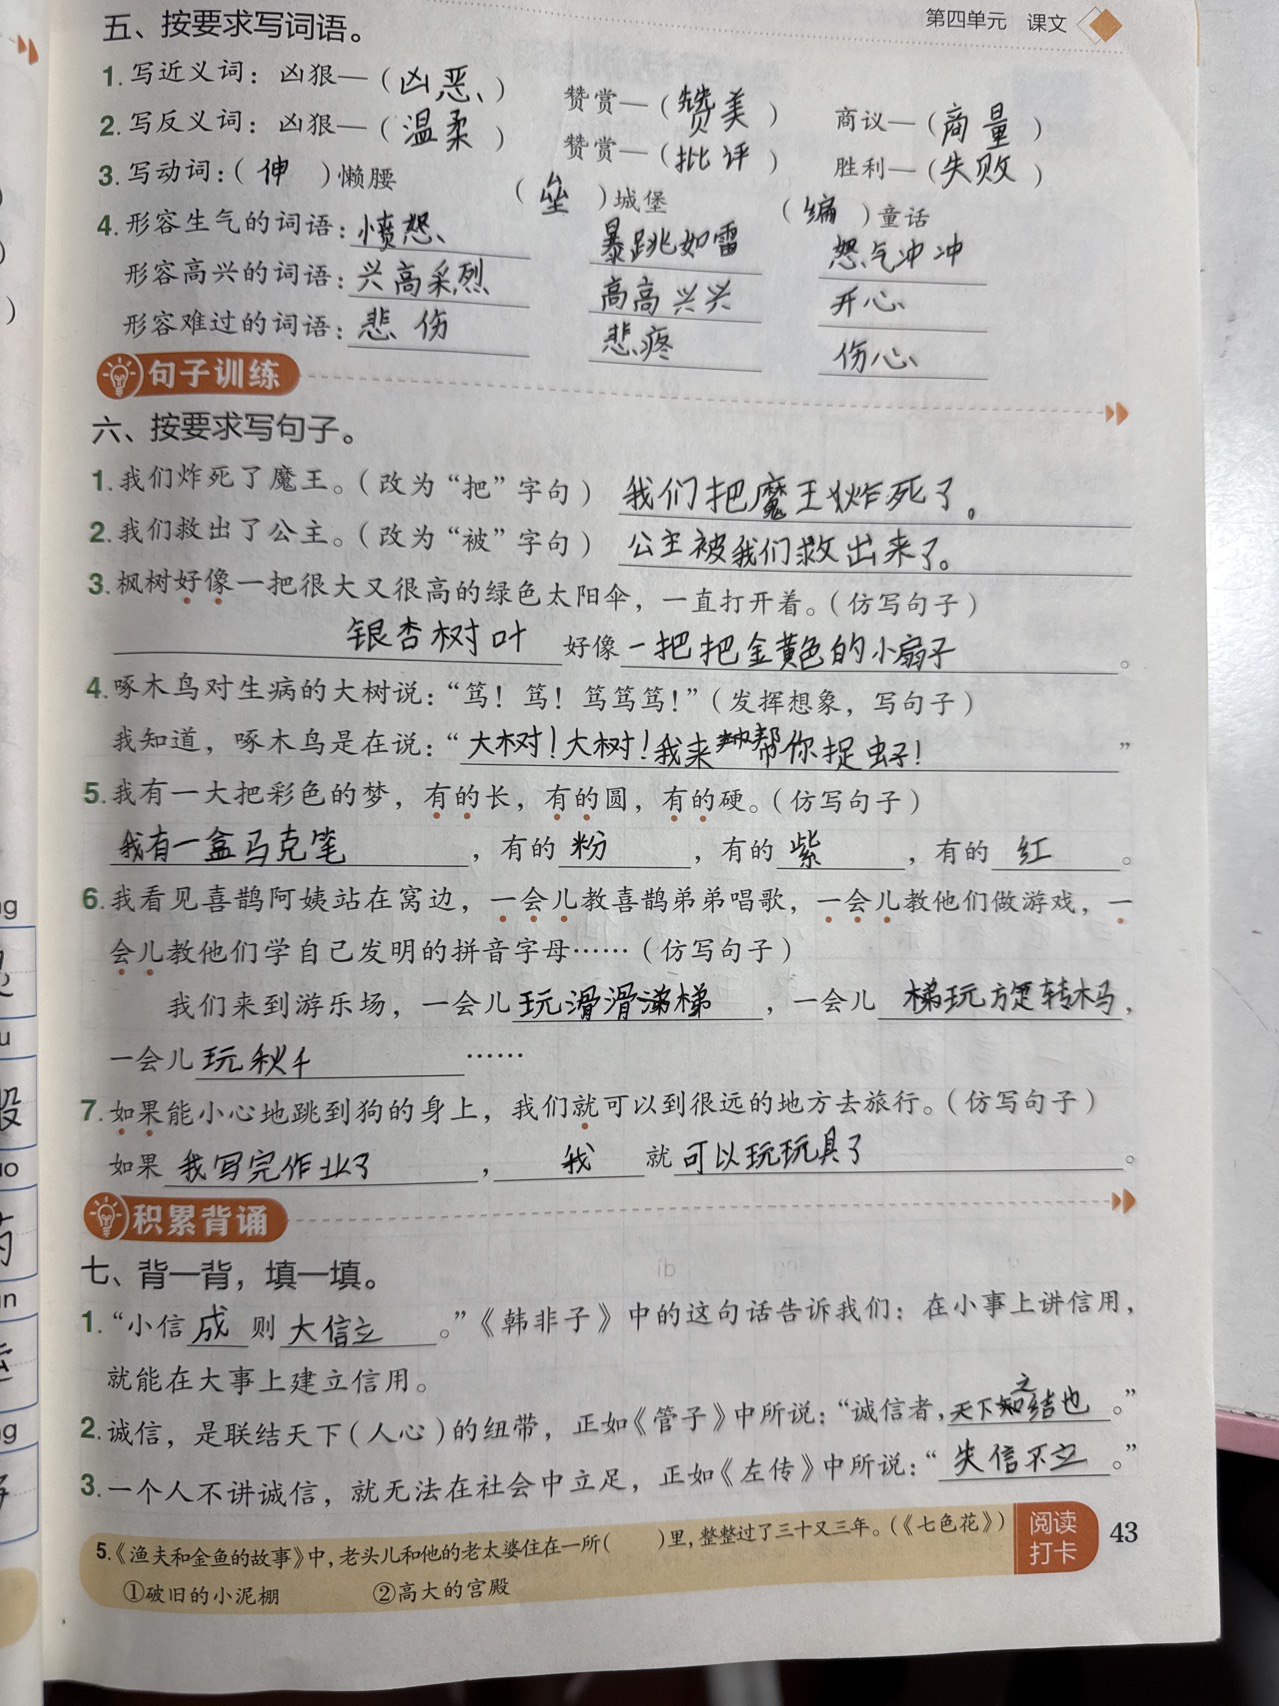 第四单元 课文
五、按要求写词语。
1.写近义词：凶狠—（凶恶） 赞赏—（赞美） 商议—（商量）
2.写反义词：凶狠—（温柔） 赞赏—（批评） 胜利—（失败）
3.写动词：（伸）懒腰 （垒）城堡 （编）童话
4.形容生气的词语：愤怒 暴跳如雷 怒气冲冲
形容高兴的词语：兴高采烈 高高兴兴 开心
形容难过的词语：悲伤 悲疼 伤心
句子训练
六、按要求写句子。
1.我们炸死了魔王。（改为“把”字句） 我们把魔王炸死了。
2.我们救出了公主。（改为“被”字句） 公主被我们救出来了。
3.枫树好像一把很大又很高的绿色太阳伞，一直打开着。（仿写句子）
银杏树叶好像一把把金黄色的小扇子。
4.啄木鸟对生病的大树说：“笃！笃！笃笃笃！”（发挥想象，写句子）
我知道，啄木鸟是在说：“大树！大树！我来帮你捉虫子！”
5.我有一大把彩色的梦，有的长，有的圆，有的硬。（仿写句子）
我有一盒马克笔，有的粉，有的紫，有的红。
6.我看见喜鹊阿姨站在窝边，一会儿教喜鹊弟弟唱歌，一会儿教他们做游戏，一
会儿教他们学自己发明的拼音字母……（仿写句子）
我们来到游乐场，一会儿玩滑滑梯，一会儿玩旋转木马，
一会儿玩秋千……
7.如果能小心地跳到狗的身上，我们就可以到很远的地方去旅行。（仿写句子）
如果我写完作业了，我就可以玩玩具了。
积累背诵
七、背一背，填一填。
1.“小信成则大信立。”《韩非子》中的这句话告诉我们：在小事上讲信用，
就能在大事上建立信用。
2.诚信，是联结天下（人心）的纽带，正如《管子》中所说：“诚信者，天下之结也。”
3.一个人不讲诚信，就无法在社会中立足，正如《左传》中所说：“失信不立。”
5.《渔夫和金鱼的故事》中，老头儿和他的老太婆住在一所（ ）里，整整过了三十又三年。（《七色花》）
①破旧的小泥棚 ②高大的宫殿
阅读
打卡
43